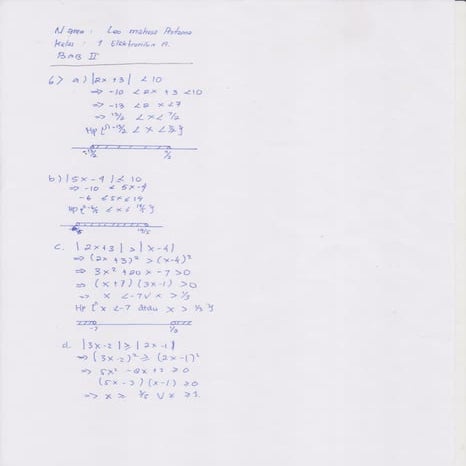 Nama : Leo mahesa Pratama
Kelas : 1 Elektronika A.
BAB II
6> a) |2x + 3| < 10
⇒ -10 < 2x + 3 < 10
⇒ -13 < 2x < 7
⇒ -13/2 < x < 7/2
Hp {-13/2 < x < 7/2}
-13/2 7/2
b) |5x - 4| ≤ 10
⇒ -10 ≤ 5x - 4
-6 ≤ 5x ≤ 14
Hp {-6/5 ≤ x ≤ 14/5}
14/5
c. |2x+3| > |x-4|
⇒ (2x+3)² > (x-4)²
⇒ 3x² + 20x - 7 > 0
⇒ (x+7) (3x-1) > 0
⇒ x < -7 ∨ x > 1/3
Hp { x < -7 atau x > 1/3 }
-7 1/3
d. |3x-2| ≥ |2x-1|
⇒ (3x-2)² ≥ (2x-1)²
⇒ 5x² - 8x + 3 ≥ 0
(5x-3) (x-1) ≥ 0
⇒ x ≥ 3/5 ∨ x ≥ 1